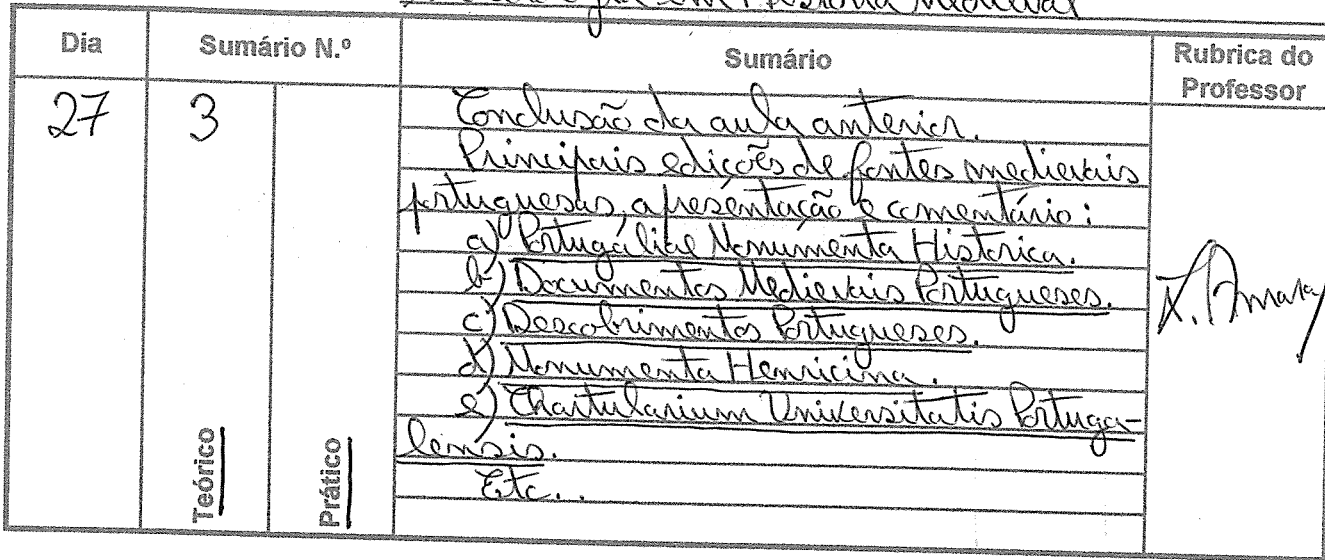 em História Medieval
Dia
Sumário N.º
Sumário
Rubrica do
Professor
27
3
Conclusão da aula anterior.
Principais edições de fontes medievais
portuguesas, apresentação e comentário:
a) Portugaliae Monumenta Historica.
b) Documentos Medievais Portugueses.
c) Descobrimentos Portugueses.
d) Monumenta Henricina.
e) Chartularium Universitatis Portuga-
lensis.
Etc..
L. Amaral
Teórico
Prático